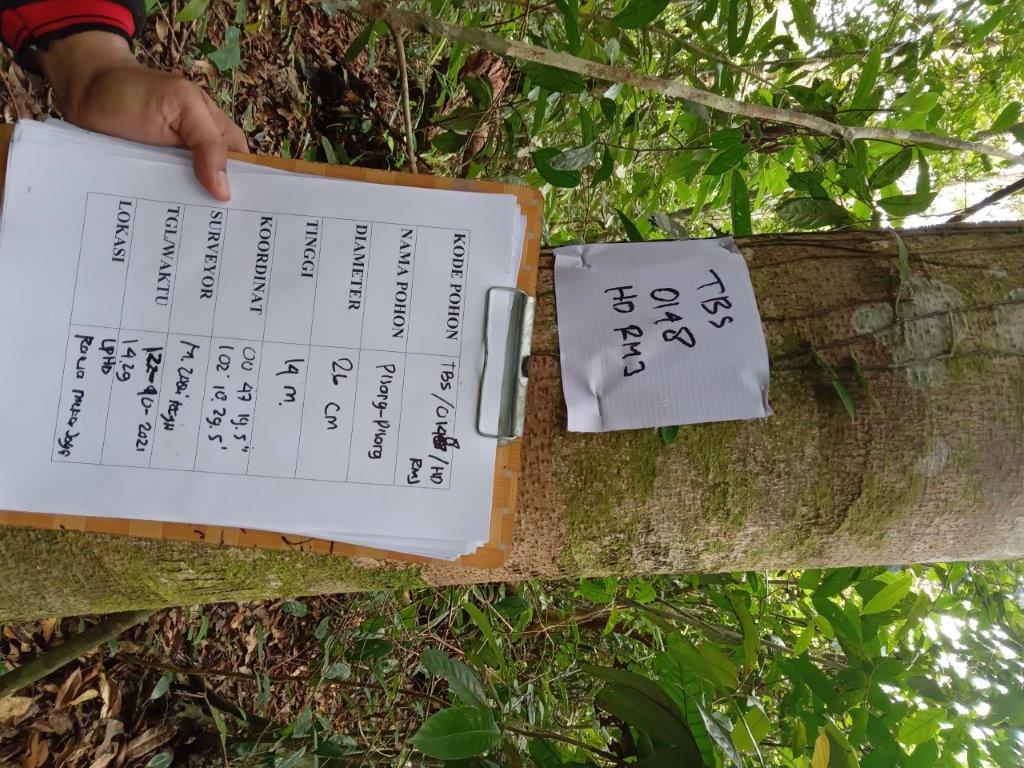 TBS
0148
HD RMJ
KODE POHON TBS/0148/HD
RMJ
NAMA POHON Pisang-Pisang
DIAMETER 26 cm
TINGGI 14 m.
KOORDINAT 00 47 19.5"
102° 18. 29. 5'
SURVEYOR M.
TGL/WAKTU 12-10-2021
14.29
LOKASI LPHD
Rawa mekar Jaya